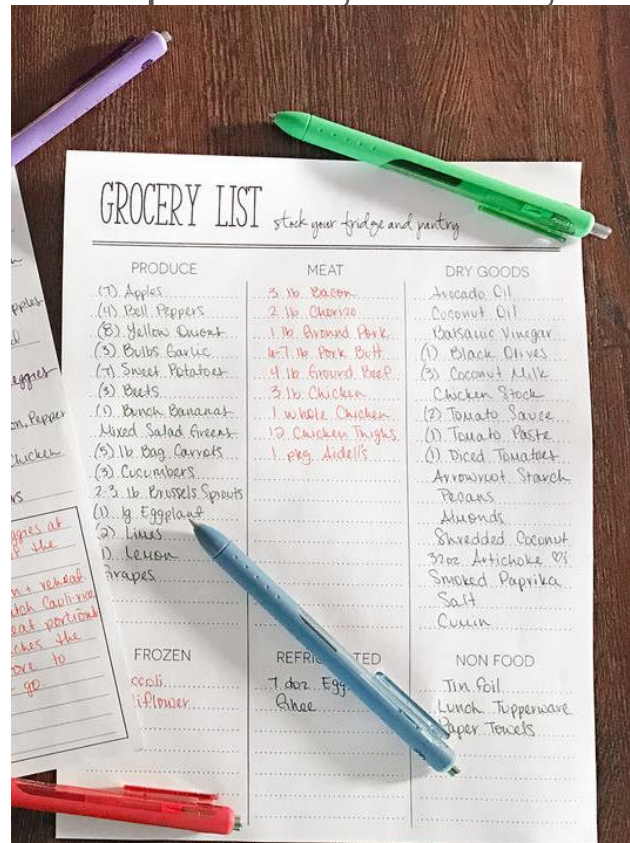 GROCERY LIST stock your fridge and pantry
PRODUCE
(7) Apples
(4) Bell Peppers
(8) Yellow Onions
(3) Bulbs Garlic
(7) Sweet Potatoes
(3) Beets
(1) Bunch Bananas
Mixed Salad Greens
(5) lb Bag Carrots
(3) Cucumbers
2-3 lb Brussels Sprouts
(1) lg Eggplant
(2) Limes
1) Lemon
Grapes
MEAT
3 lb Bacon
2 lb Chorizo
1 lb Ground Pork
6-7 lb Pork Butt
4 lb Ground Beef
3 lb Chicken
1 whole Chicken
12 Chicken Thighs
1 pkg Aidell's
DRY GOODS
Avocado Oil
Coconut Oil
Balsamic Vinegar
(1) Black Olives
(3) Coconut Milk
Chicken Stock
(2) Tomato Sauce
(1) Tomato Paste
(1) Diced Tomatoes
Arrowroot Starch
Pecans
Almonds
Shredded Coconut
32oz Artichoke ♡s
Smoked Paprika
Salt
Cumin
FROZEN
ccoli
liflower
REFRIG TED
7 doz Egg
Ghee
NON FOOD
Tin foil
Lunch Tupperware
Paper Towels
pples
eggies
on, Pepper
Chicken
rs
ggies at
the
n + reheat
tch Cauli-rice
eat portions
ches the
ore to
go